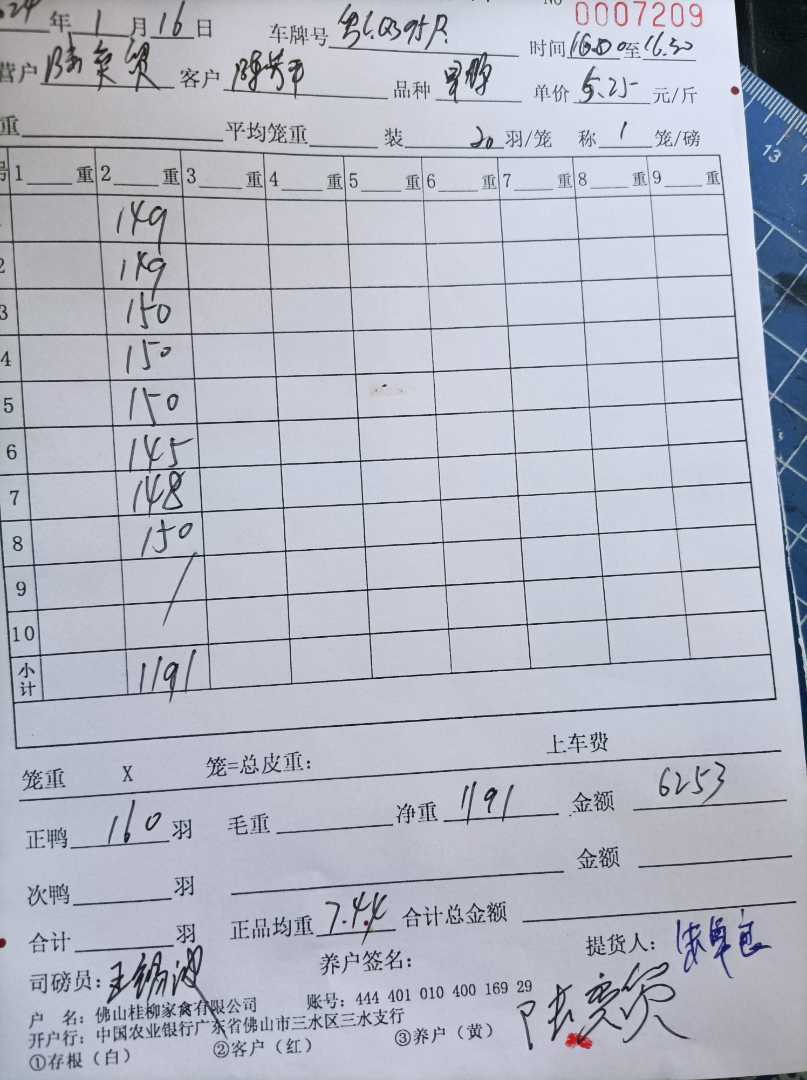 2024 年 1 月 16 日 车牌号 No 0007209
时间 16.00 至 16.30
营户 客户 陈芳平 品种 单价 5.25 元/斤
重 平均笼重 装 20 羽/笼 称 1 笼/磅
号 1 重 2 重 3 重 4 重 5 重 6 重 7 重 8 重 9 重
1 149
2 149
3 150
4 150
5 150
6 145
7 148
8 150
9 /
10
小计 1191
笼重 X 笼=总皮重: 上车费
正鸭 160 羽 毛重 净重 1191 金额 6253
次鸭 羽 金额
合计 羽 正品均重 7.44 合计总金额
司磅员: 王锡波 养户签名: 提货人:
户 名: 佛山桂柳家禽有限公司 账号: 444 401 010 400 169 29
开户行: 中国农业银行广东省佛山市三水区三水支行
①存根(白) ②客户(红) ③养户(黄)